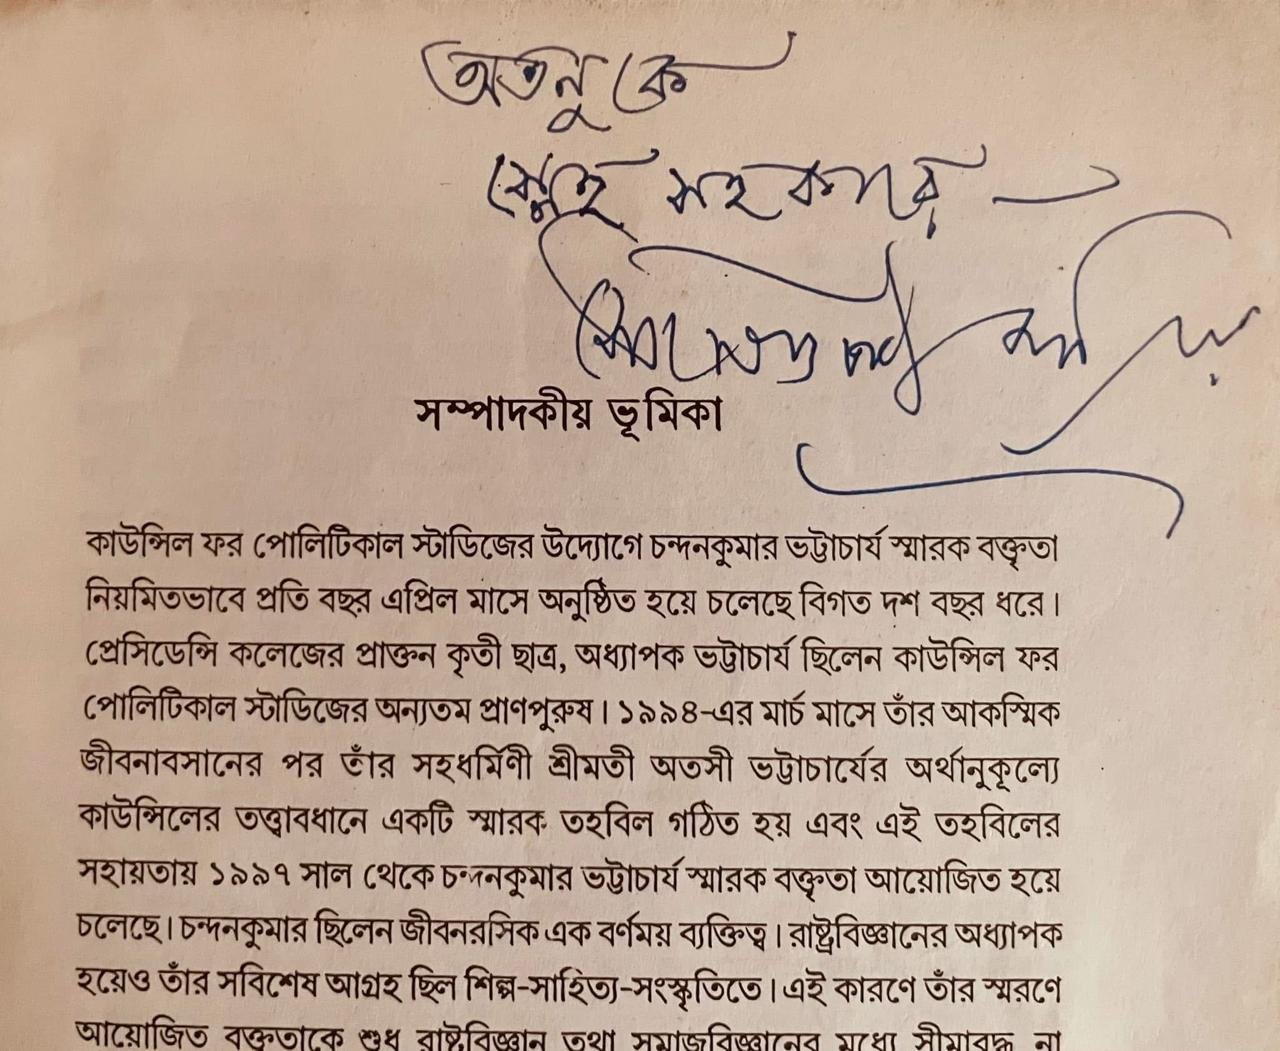 অতনু কে
স্নেহ সহ কারে —
সম্পাদকীয় ভূমিকা
কাউন্সিল ফর পোলিটিকাল স্টাডিজের উদ্যোগে চন্দনকুমার ভট্টাচার্য স্মারক বক্তৃতা
নিয়মিতভাবে প্রতি বছর এপ্রিল মাসে অনুষ্ঠিত হয়ে চলেছে বিগত দশ বছর ধরে।
প্রেসিডেন্সি কলেজের প্রাক্তন কৃতী ছাত্র, অধ্যাপক ভট্টাচার্য ছিলেন কাউন্সিল ফর
পোলিটিকাল স্টাডিজের অন্যতম প্রাণপুরুষ। ১৯৯৪-এর মার্চ মাসে তাঁর আকস্মিক
জীবনাবসানের পর তাঁর সহধর্মিণী শ্রীমতী অতসী ভট্টাচার্যের অর্থানুকূল্যে
কাউন্সিলের তত্ত্বাবধানে একটি স্মারক তহবিল গঠিত হয় এবং এই তহবিলের
সহায়তায় ১৯৯৭ সাল থেকে চন্দনকুমার ভট্টাচার্য স্মারক বক্তৃতা আয়োজিত হয়ে
চলেছে। চন্দনকুমার ছিলেন জীবনরসিক এক বর্ণময় ব্যক্তিত্ব। রাষ্ট্রবিজ্ঞানের অধ্যাপক
হয়েও তাঁর সবিশেষ আগ্রহ ছিল শিল্প-সাহিত্য-সংস্কৃতিতে। এই কারণে তাঁর স্মরণে
আয়োজিত বক্তৃতাকে শুধু রাষ্ট্রবিজ্ঞান তথা সমাজবিজ্ঞানের মধ্যে সীমাবদ্ধ না